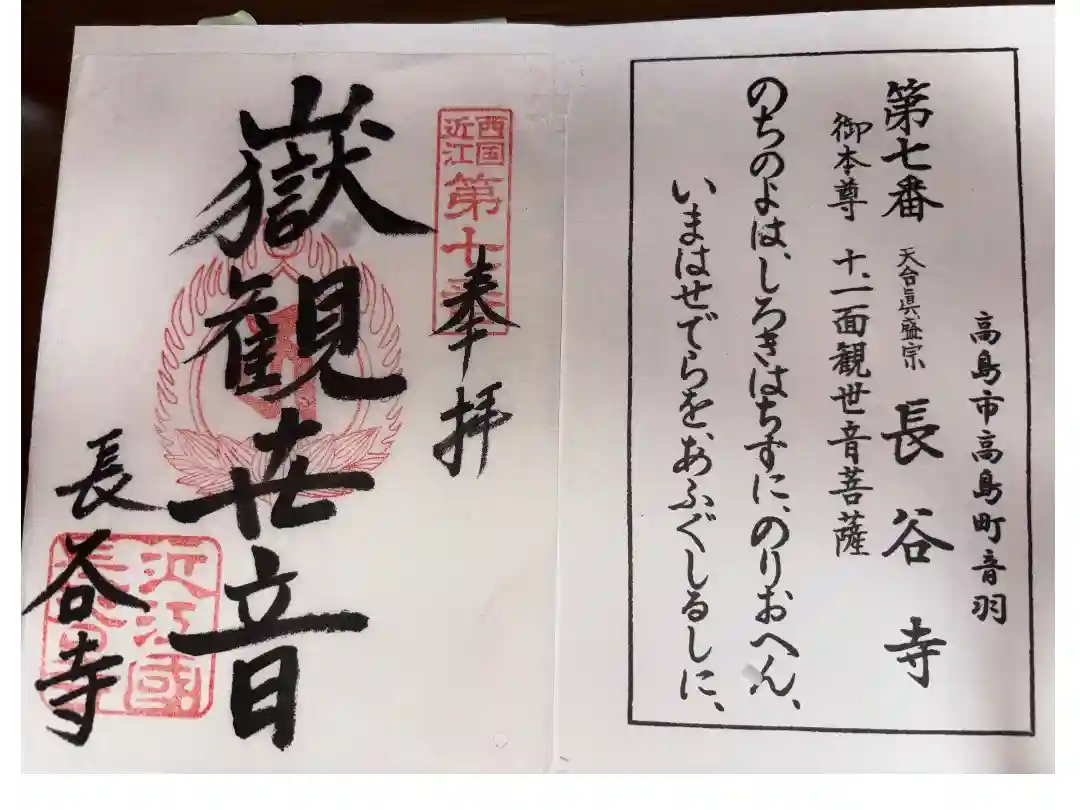 高島市高島町音羽
第七番 天台眞盛宗 長谷寺
御本尊 十一面観世音菩薩
のちのよは、しろきはちすに、のりおへん、
いまはせでらを、あふぐしるしに、
西国
近江
第
奉拝
嶽観世音
長谷寺
近江國
長谷寺